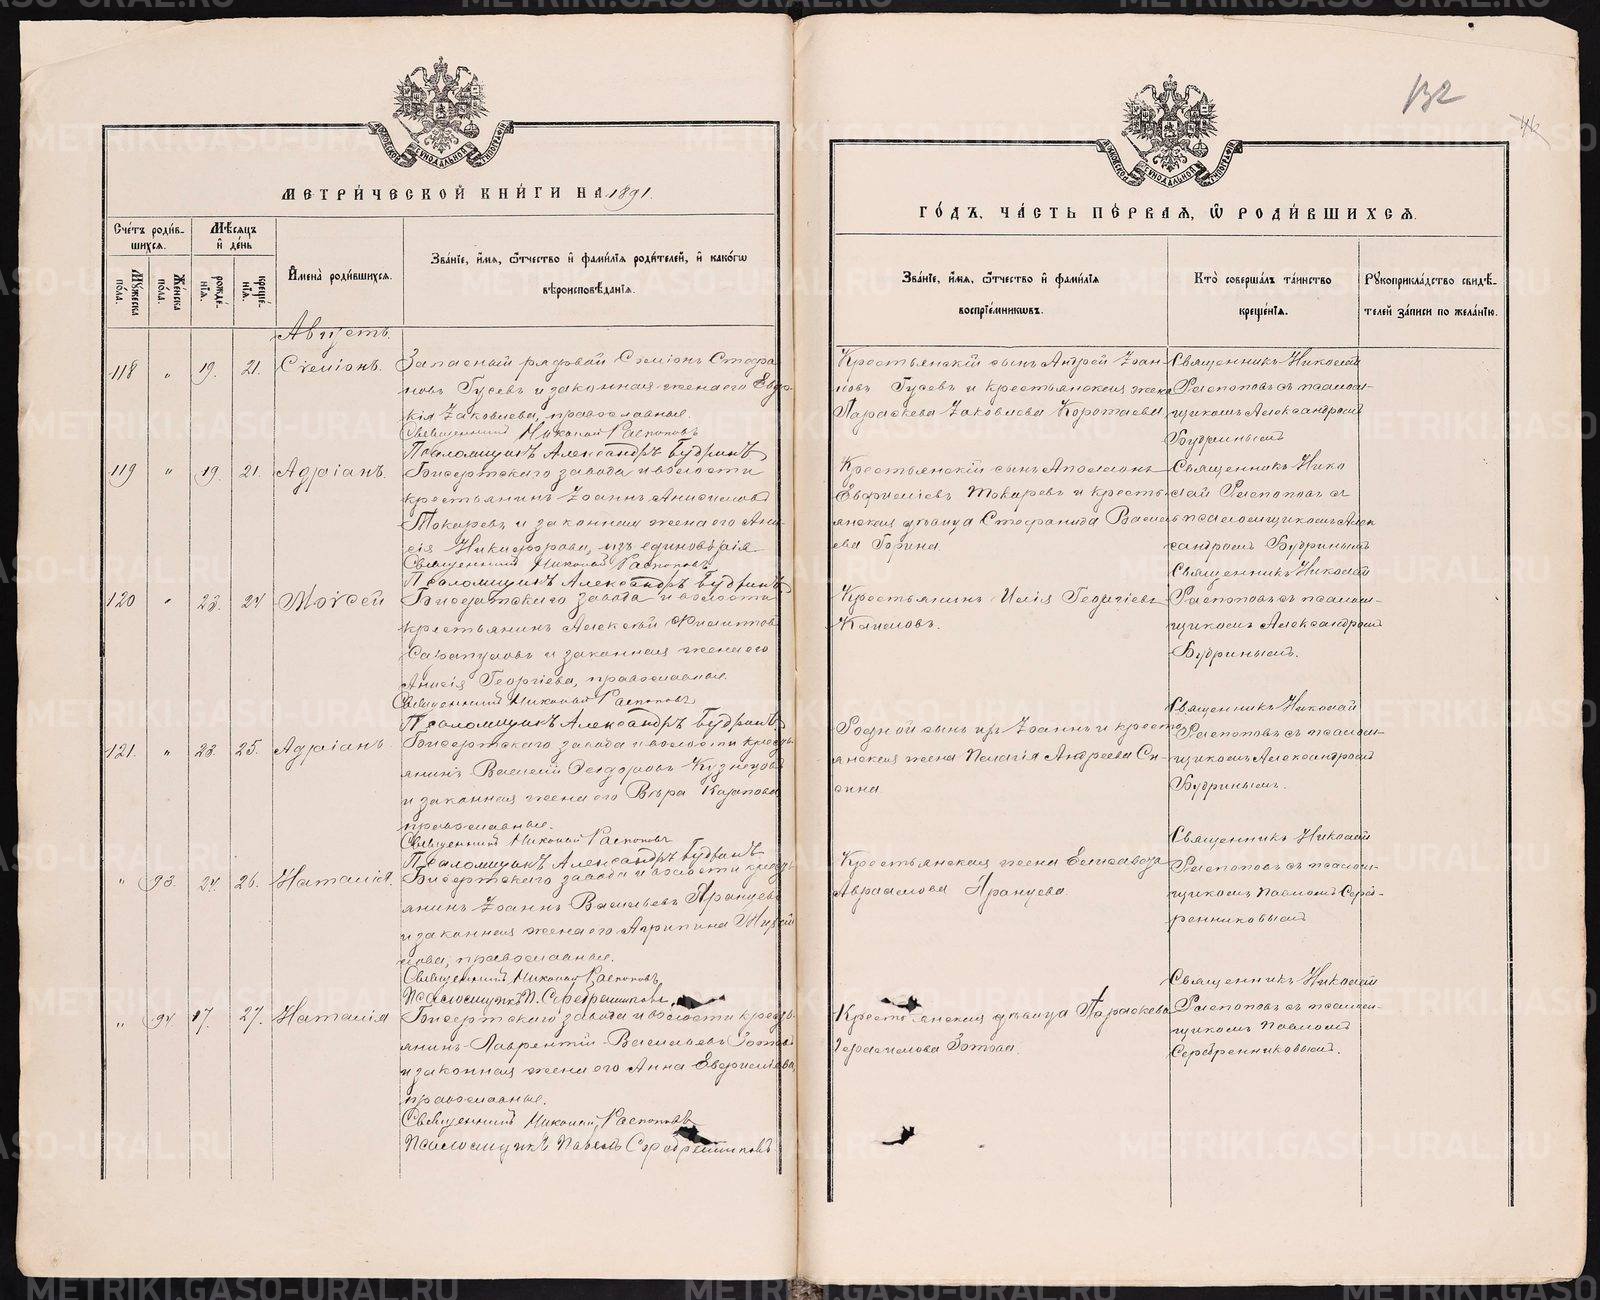 МЕТРИ́ЧЕСКОЙ КНИ́ГИ НА 1891.
Сче́тъ роди́в-
шихся.
Мѣсяцъ
и де́нь
Му́жеска
по́ла.
Же́нска
по́ла.
рожде́-
нія.
креще́-
нія.
Имена̀ роди́вшихся.
Зва́ніе, и́мя, о́тчество и фами́лія роди́телей, и како́гѡ
вѣроисповѣ́данія.
Августъ.
118 " 19. 21. Сѵмеонъ.
Запасный рядовой Сѵмеонъ Стефа
новъ Гусевъ и законная жена его Евдо-
кія Іаковлева, православные.
Священникъ Николай Распоповъ
Псаломщикъ Александръ Будринъ
119 " 19. 21. Адріанъ.
Бисертскаго завода и волости
крестьянинъ Іоаннъ Анисимовъ
Токаревъ и законная жена его Ани-
сія Никифорова, изъ единовѣрія
Священникъ Николай Распоповъ
Псаломщикъ Александръ Будринъ
120 " 23. 24 Моѵсей
Бисертскаго завода и волости
крестьянинъ Алексѣй Филиппов
Сарапуловъ и законная жена его
Анисія Георгіева, православные.
Священникъ Николай Распоповъ
Псаломщикъ Александръ Будринъ
121. " 23. 25. Адріанъ
Бисертскаго завода и волости кресть-
янинъ Василій Ѳеодоровъ Кузнецовъ
и законная жена его Вѣра Карпова
православные.
Священникъ Николай Распоповъ
Псаломщикъ Александръ Будринъ
" 93. 24. 26. Наталія.
Бисертскаго завода и волости кресть-
янинъ Іоаннъ Васильевъ Яранцевъ
и законная жена его Агрипина
лова, православные.
Священникъ Николай Распоповъ
Псаломщикъ П. Серебренниковъ
" 94 17. 27. Наталія
Бисертскаго завода и волости кресть-
янинъ Лаврентій Васильевъ Зотовъ
и законная жена его Анна Евфиміева,
православные.
Священникъ Николай Распоповъ
Псаломщикъ Павелъ Серебренниковъ
132
ГО́ДЪ, ЧА́СТЬ ПЕ́РВАЯ, Ѡ РОДИ́ВШИХСЯ.
Зва́ніе, и́мя, о́тчество и фами́лія
воспріе́мниковъ.
Кто̀ соверша́лъ та́инство
креще́нія.
Рукоприкла́дство свидѣ́-
телей за́писи по жела́нію.
Крестьянскій сынъ Андрей Іоан-
новъ Гусевъ и крестьянская жена
Параскева Іаковлева Коротаева
Священникъ Николай
Распоповъ съ псалом-
щикомъ Александромъ
Будринымъ
Крестьянскій сынъ Аполлонъ
Евфиміевъ Токаревъ и кресть-
янская дѣвица Стефанида Василь-
ева Горина.
Священникъ Нико
лай Распоповъ съ
псаломщикомъ Алек
сандромъ Будринымъ
Крестьянинъ Илія Георгіевъ
Климовъ.
Священникъ Николай
Распоповъ съ псалом-
щикомъ Александромъ
Будринымъ.
Родной сынъ ихъ Іоаннъ и кресть
янская жена Пелагія Андреева Си-
Священникъ Николай
Распоповъ съ псалом-
щикомъ Александромъ
Будринымъ.
Крестьянская жена Елисавета
Авраамова Яранцева.
Священникъ Николай
Распоповъ съ псалом-
щикомъ Павломъ Сереб-
ренниковымъ
Крестьянская дѣвица Параскева
Герасимова Зотова.
Священникъ Николай
Распоповъ съ псалом-
щикомъ Павломъ
Серебренниковымъ.